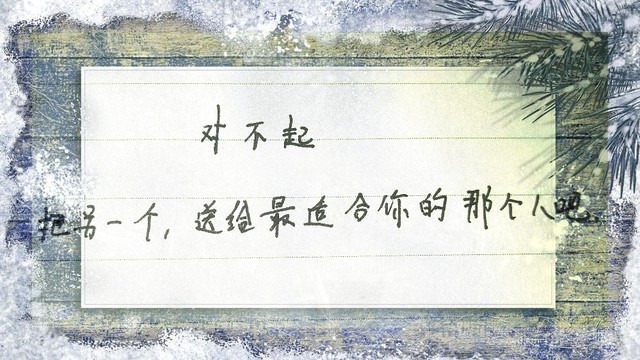 对不起
把另一个，送给最适合你的那个人吧。